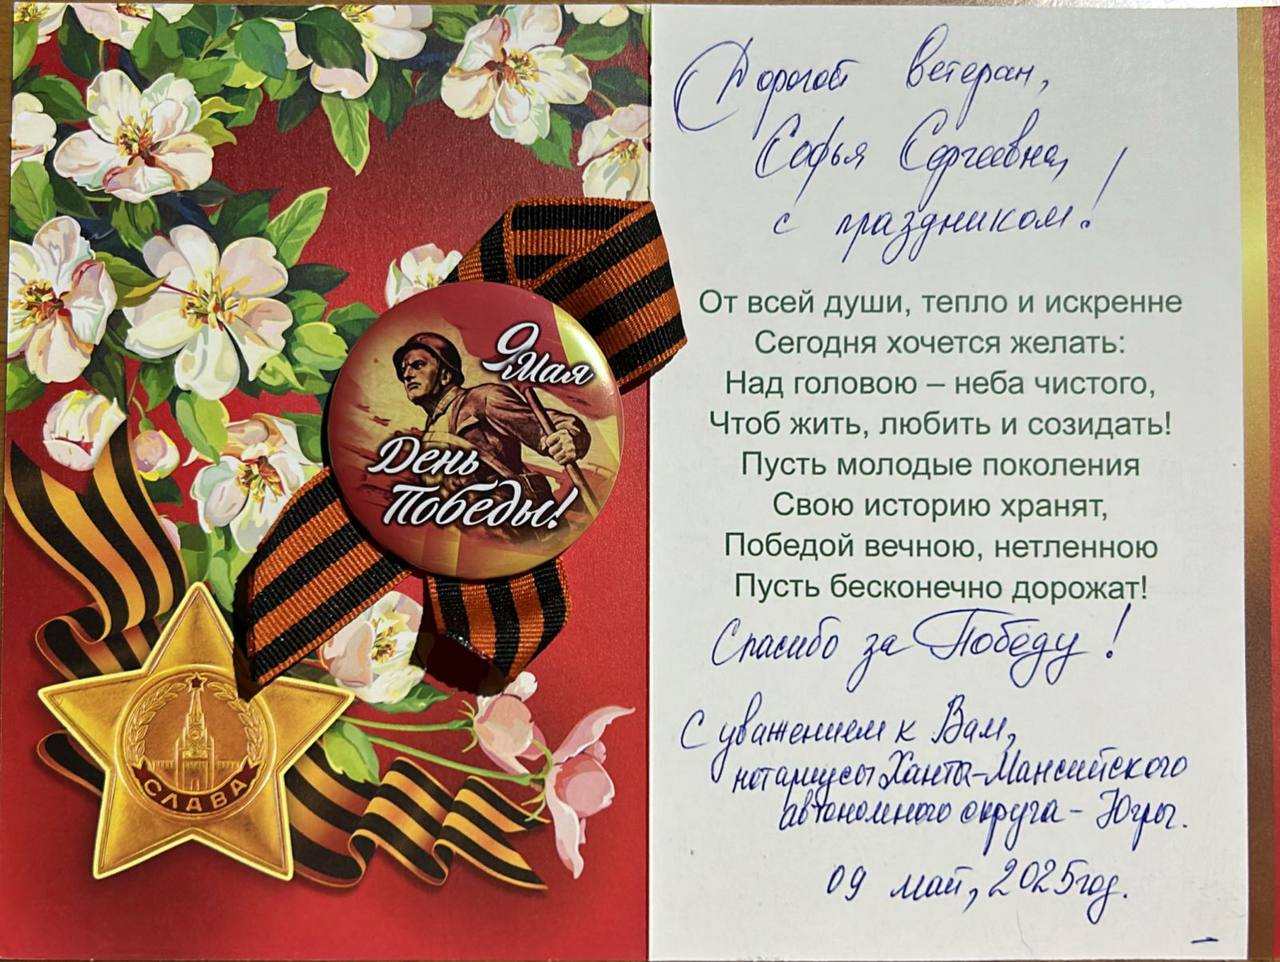 9 Мая
День
Победы!
СЛАВА
Дорогой ветеран,
Софья Сергеевна,
с праздником!
От всей души, тепло и искренне
Сегодня хочется желать:
Над головою – неба чистого,
Чтоб жить, любить и созидать!
Пусть молодые поколения
Свою историю хранят,
Победой вечною, нетленною
Пусть бесконечно дорожат!
Спасибо за Победу!
С уважением к Вам,
нотариусы Ханты-Мансийского
автономного округа - Югры.
09 май, 2025год.